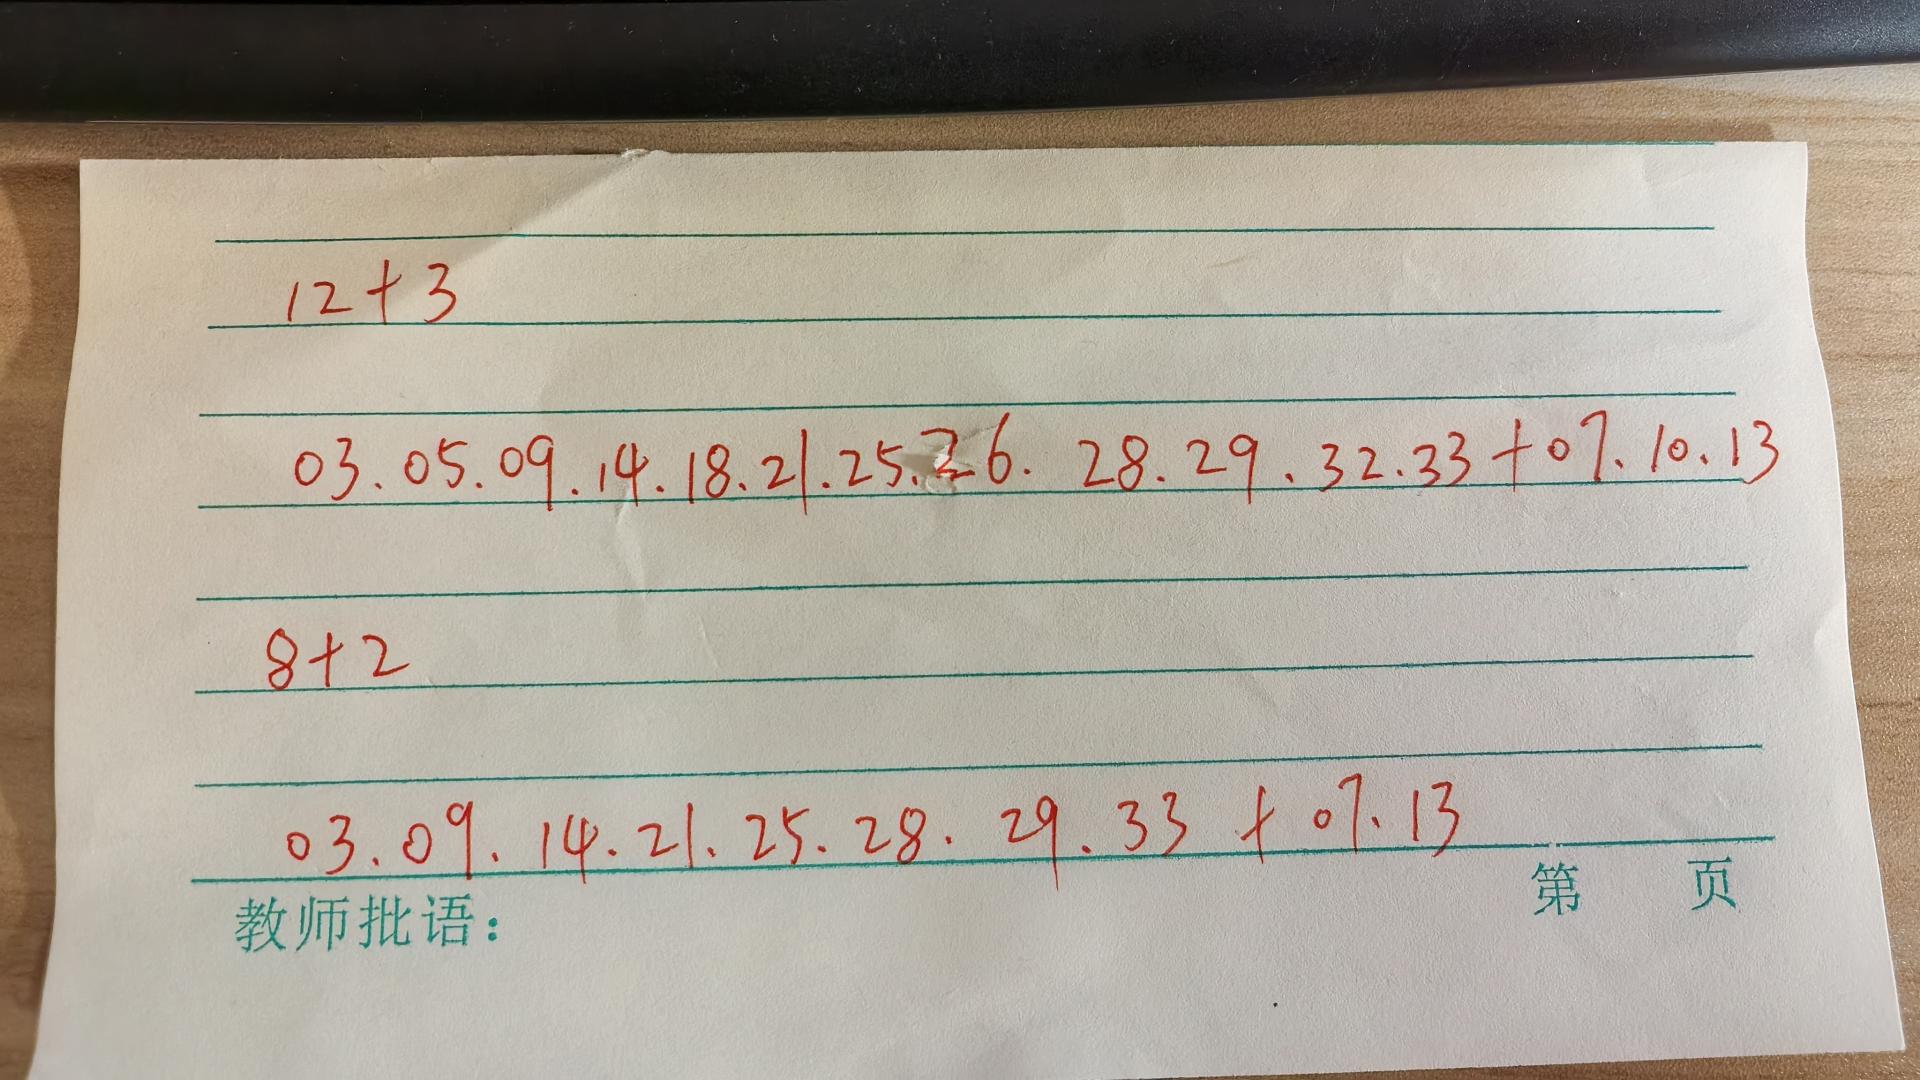 12+3
03.05.09.14.18.21.25.26.28.29.32.33+07.10.13
8+2
03.09.14.21.25.28.29.33+07.13
教师批语： 第 页